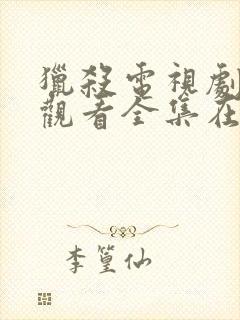 獵殺電視劇
觀看全集在
李篁仙